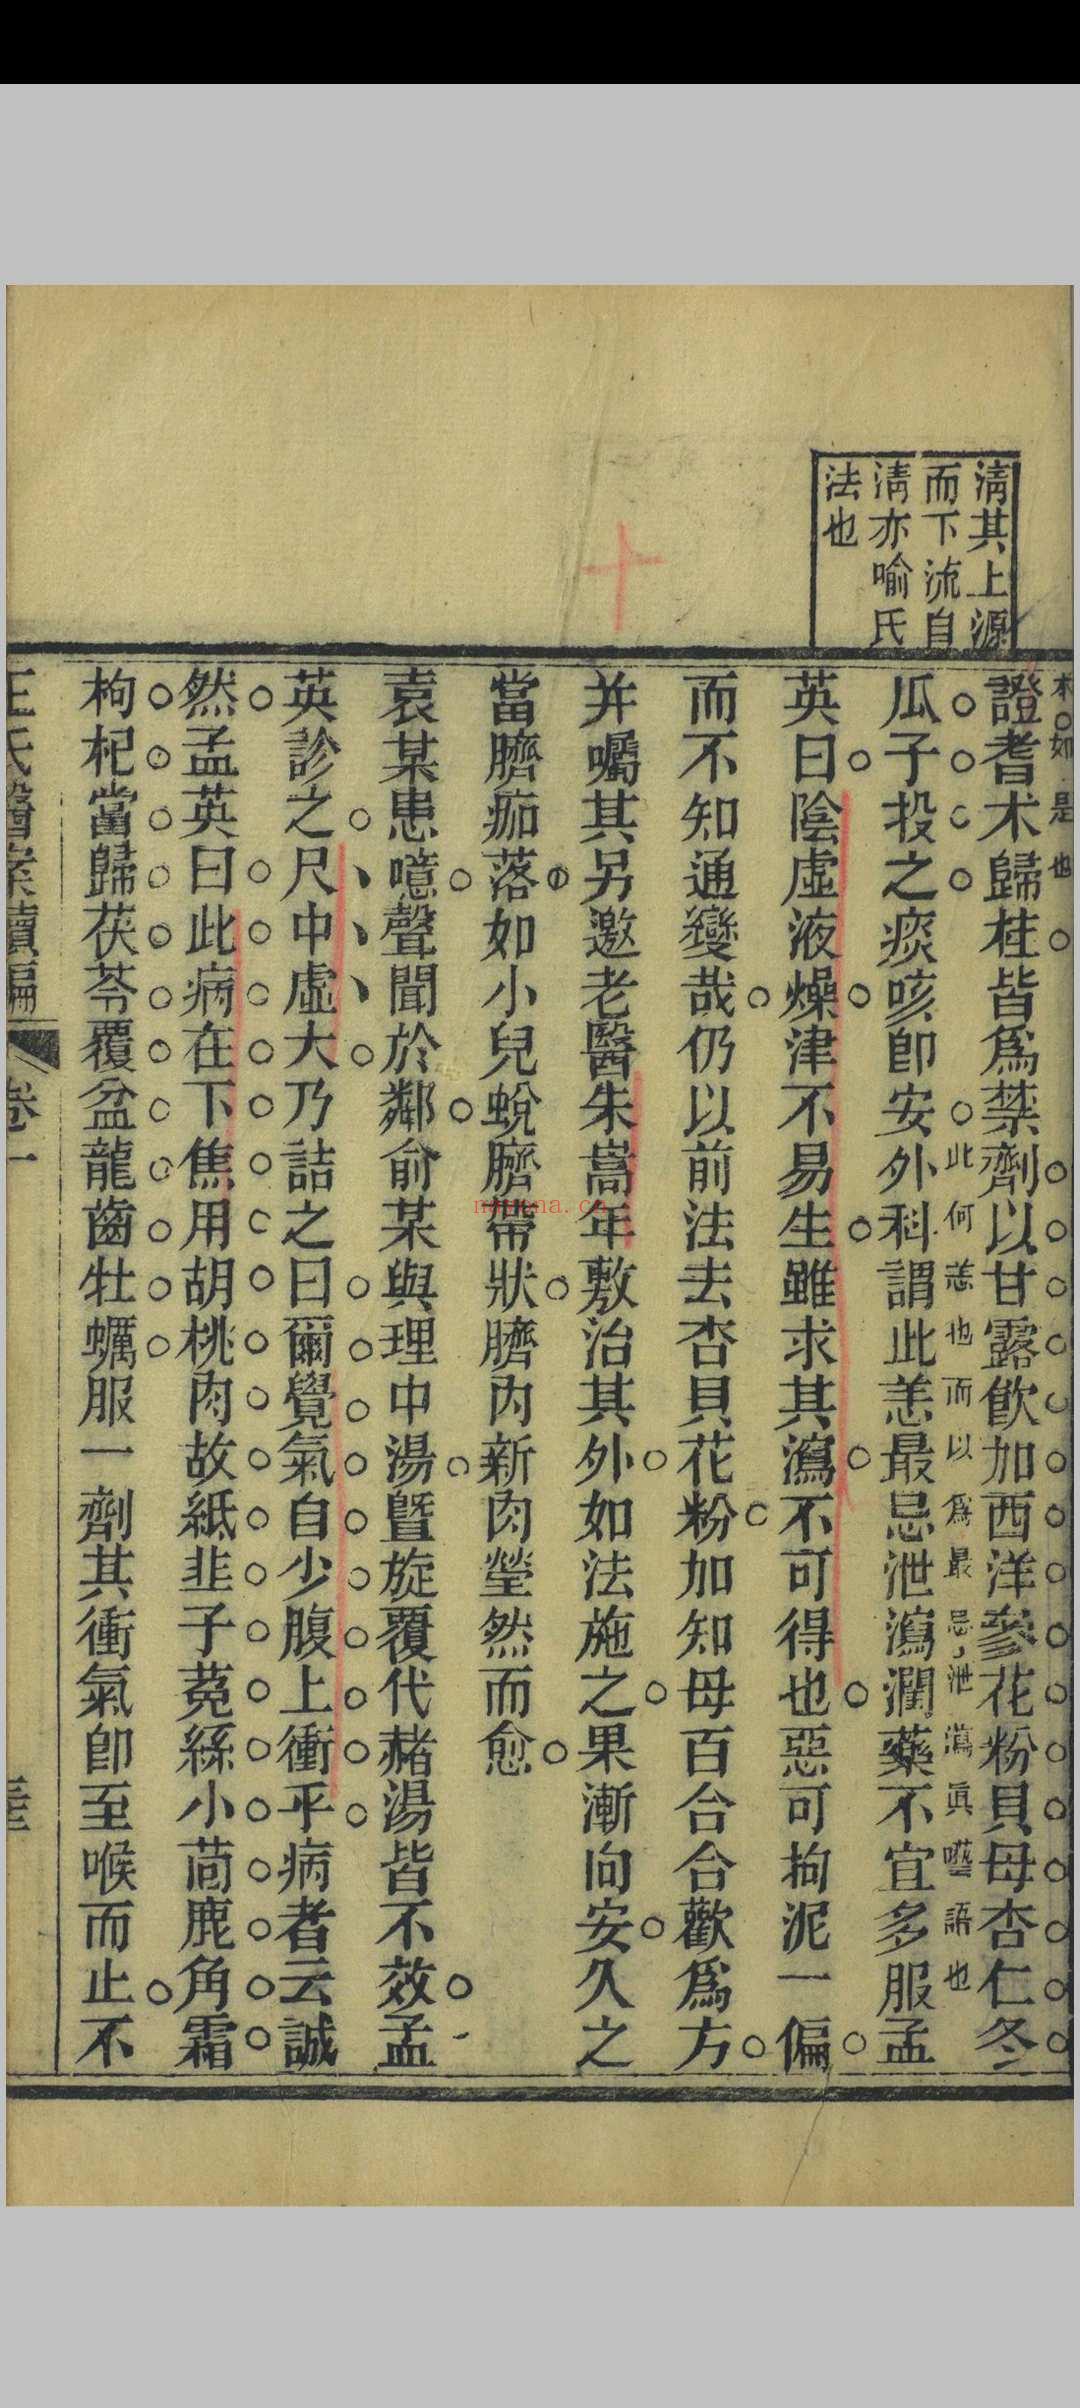 清其上源
而下流自
清亦喻氏
法也
如是也
證耆术歸桂皆爲禁劑以甘露飲加西洋參花粉貝母杏仁冬
此何恙也而以爲最忌泄瀉眞囈語也
瓜子投之痰咳卽安外科謂此恙最忌泄瀉潤藥不宜多服孟
英曰陰虛液燥津不易生雖求其瀉不可得也惡可拘泥一偏
而不知通變哉仍以前法去杏貝花粉加知母百合合歡爲方
并囑其另邀老醫朱嵩年敷治其外如法施之果漸向安久之
當臍痂落如小兒蛻臍帶狀臍內新肉瑩然而愈
袁某患噫聲聞於鄰俞某與理中湯曁旋覆代赭湯皆不效孟
英診之尺中虛大乃詰之曰爾覺氣自少腹上衝乎病者云誠
然孟英曰此病在下焦用胡桃肉故紙韭子菟絲小茴鹿角霜
枸杞當歸茯苓覆盆龍齒牡蠣服一劑其衝氣卽至喉而止不
王氏醫案續編 卷一
nayona.cn